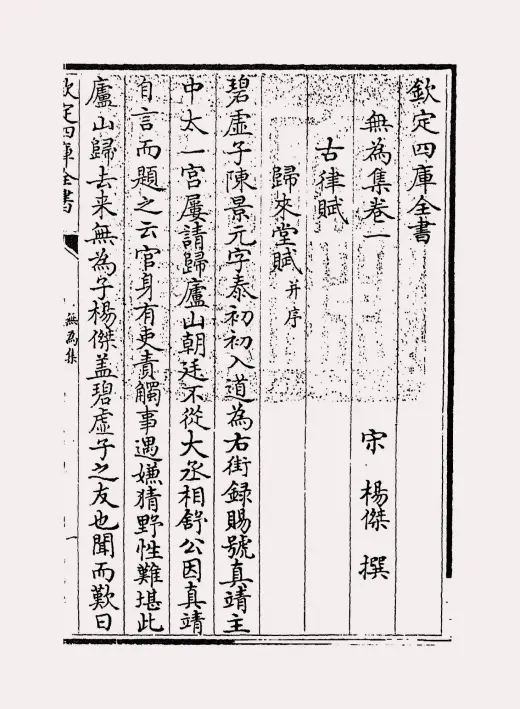 欽定四庫全書
無為集卷一
宋 楊傑 撰
古律賦
歸來堂賦并序
碧虛子陳景元字泰初初入道為右街録賜號真靖主
中太一宫屢請歸廬山朝廷不從大丞相舒公因真靖
自言而題之云官身有吏責觸事遇嫌猜野性難堪此
廬山歸去来無為子楊傑盖碧虛子之友也聞而歎曰
欽定四庫全書
無為集
一